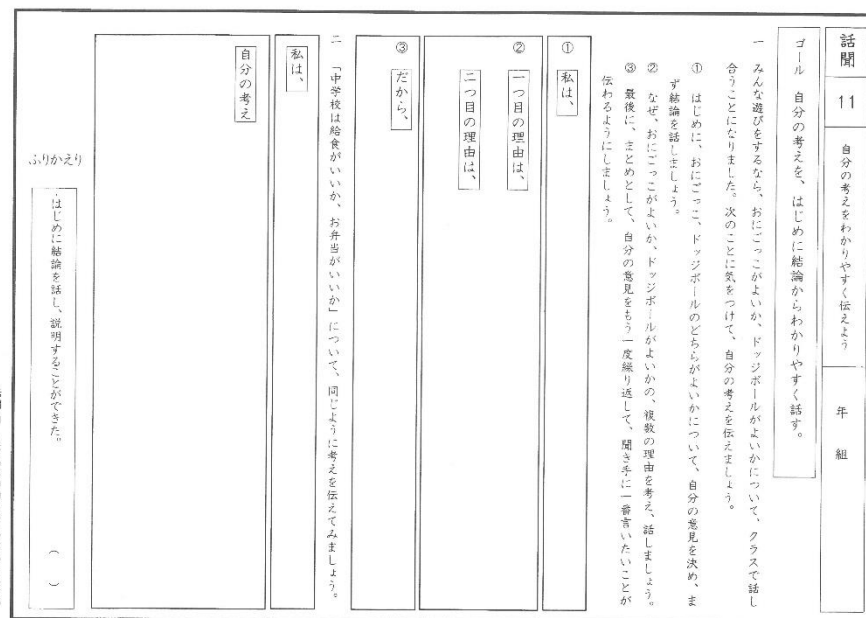 話聞
11
自分の考えをわかりやすく伝えよう
年 組
ゴール 自分の考えを、はじめに結論からわかりやすく話す。
一 みんな遊びをするなら、おにごっこがよいか、ドッジボールがよいかについて、クラスで話し
合うことになりました。次のことに気をつけて、自分の考えを伝えましょう。
① はじめに、おにごっこ、ドッジボールのどちらがよいかについて、自分の意見を決め、ま
ず結論を話しましょう。
② なぜ、おにごっこがよいか、ドッジボールがよいかの、複数の理由を考え、話しましょう。
③ 最後に、まとめとして、自分の意見をもう一度繰り返して、聞き手に一番言いたいことが
伝わるようにしましょう。
① 私は、
② 一つ目の理由は、
二つ目の理由は、
③ だから、
二 「中学校は給食がいいか、お弁当がいいか」について、同じように考えを伝えてみましょう。
私は、
自分の考え
ふりかえり
はじめに結論を話し、説明することができた。 （ ）